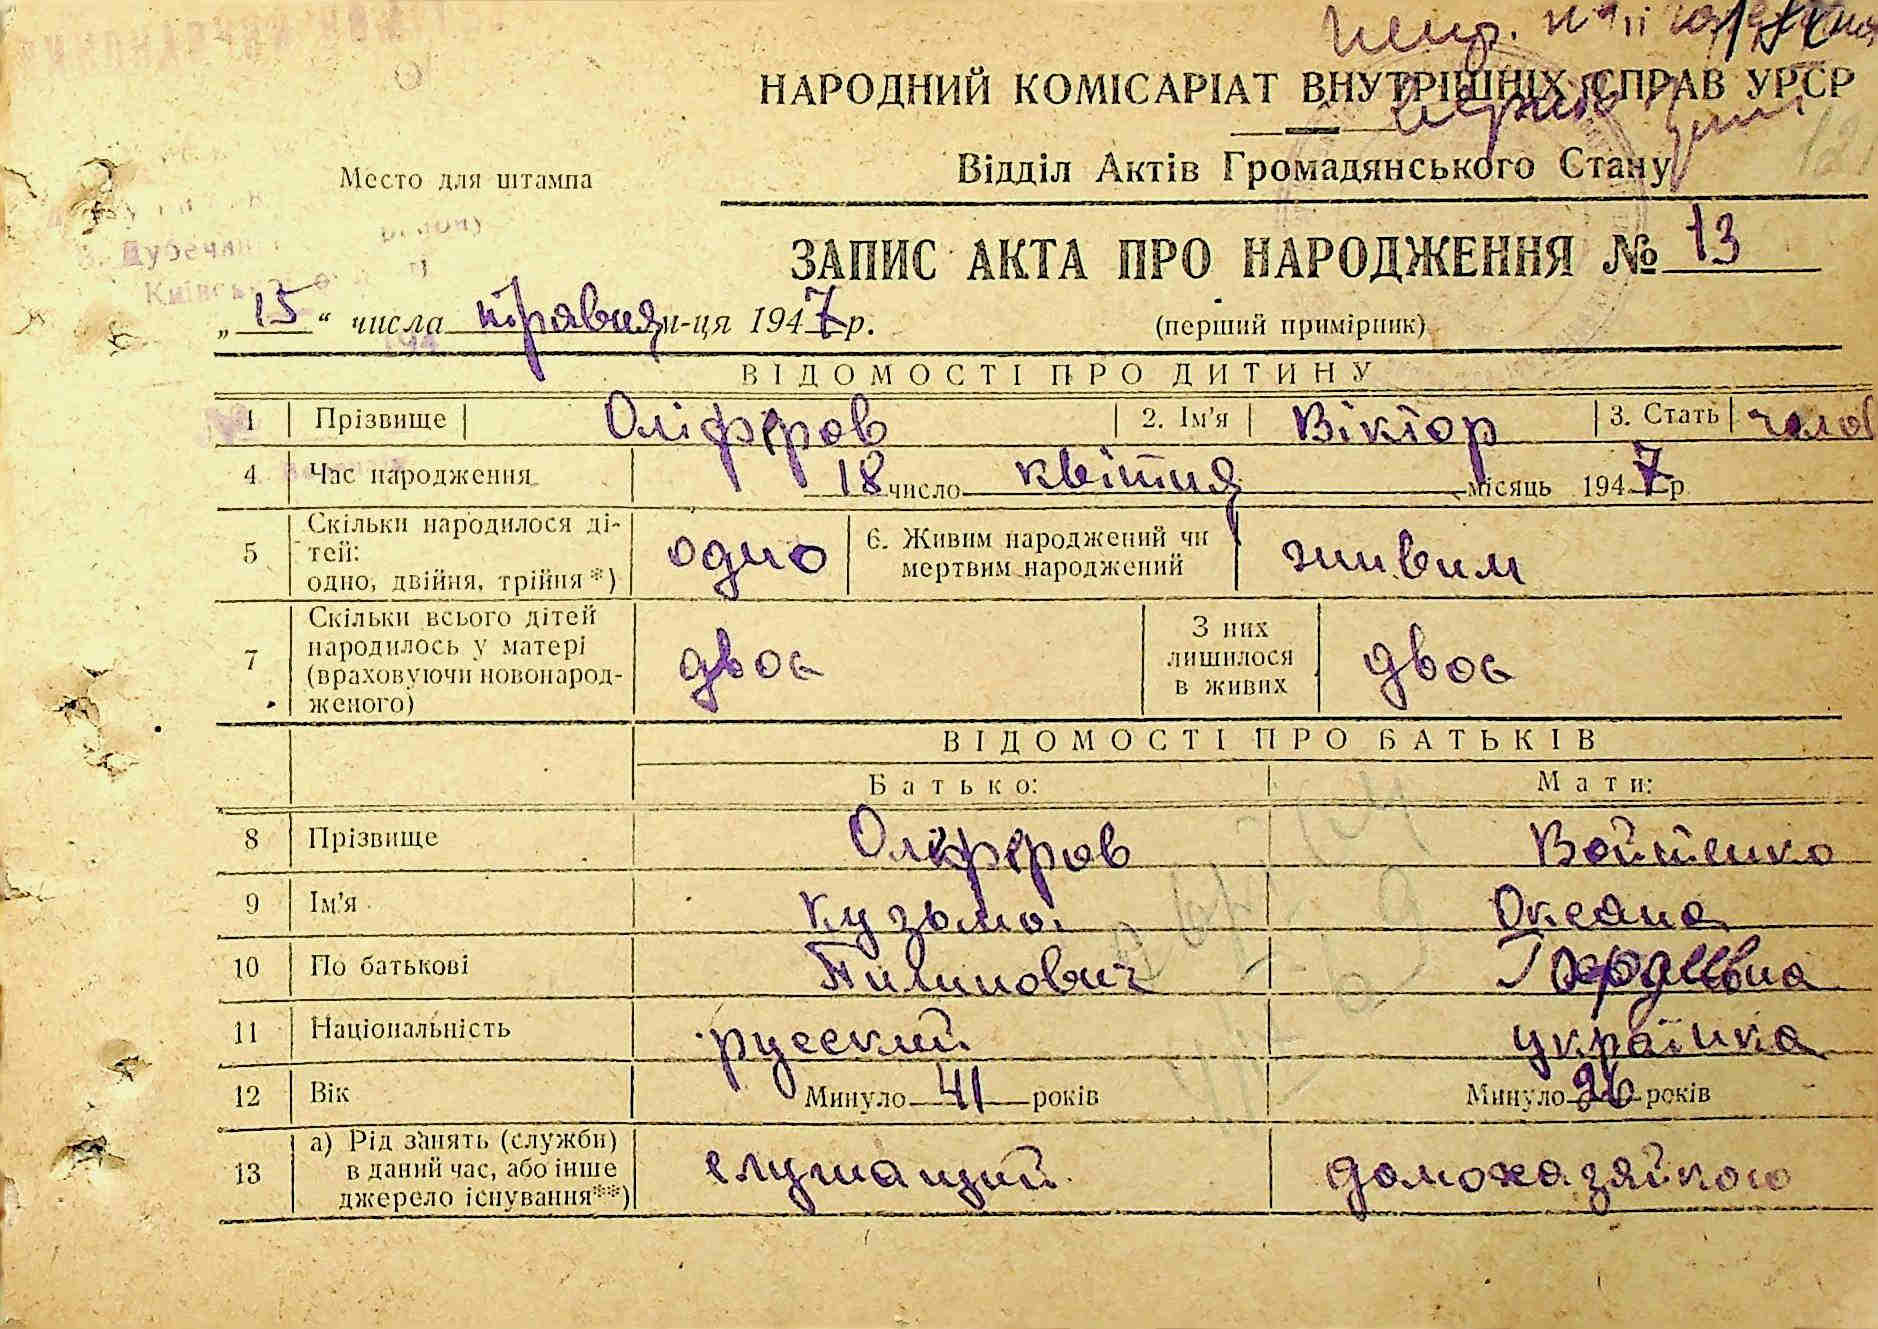 НАРОДНИЙ КОМІСАРІАТ ВНУТРІШНІХ СПРАВ УРСР
Место для штампа
Відділ Актів Громадянського Стану
ЗАПИС АКТА ПРО НАРОДЖЕННЯ № 13
„15“ числа травня м-ця 1947 р.
(перший примірник)
ВІДОМОСТІ ПРО ДИТИНУ
1 Прізвище Оліферов 2. Ім'я Віктор 3. Стать чолов
4 Час народження 18 число квітня місяць 1947 р
5 Скільки народилося ді-
тей:
одно, двійня, трійня*) одно 6. Живим народжений чи
мертвим народжений живим
7 Скільки всього дітей
народилось у матері
(враховуючи новонарод-
женого) двоє З них
лишилося
в живих двоє
ВІДОМОСТІ ПРО БАТЬКІВ
Батько: Мати:
8 Прізвище Оліферов Войтенко
9 Ім'я Кузьма Оксана
10 По батькові Пилипович
11 Національність русский українка
12 Вік Минуло 41 років Минуло 26 років
13 а) Рід занять (служби)
в даний час, або інше
джерело існування**) служащий домохазяйкою